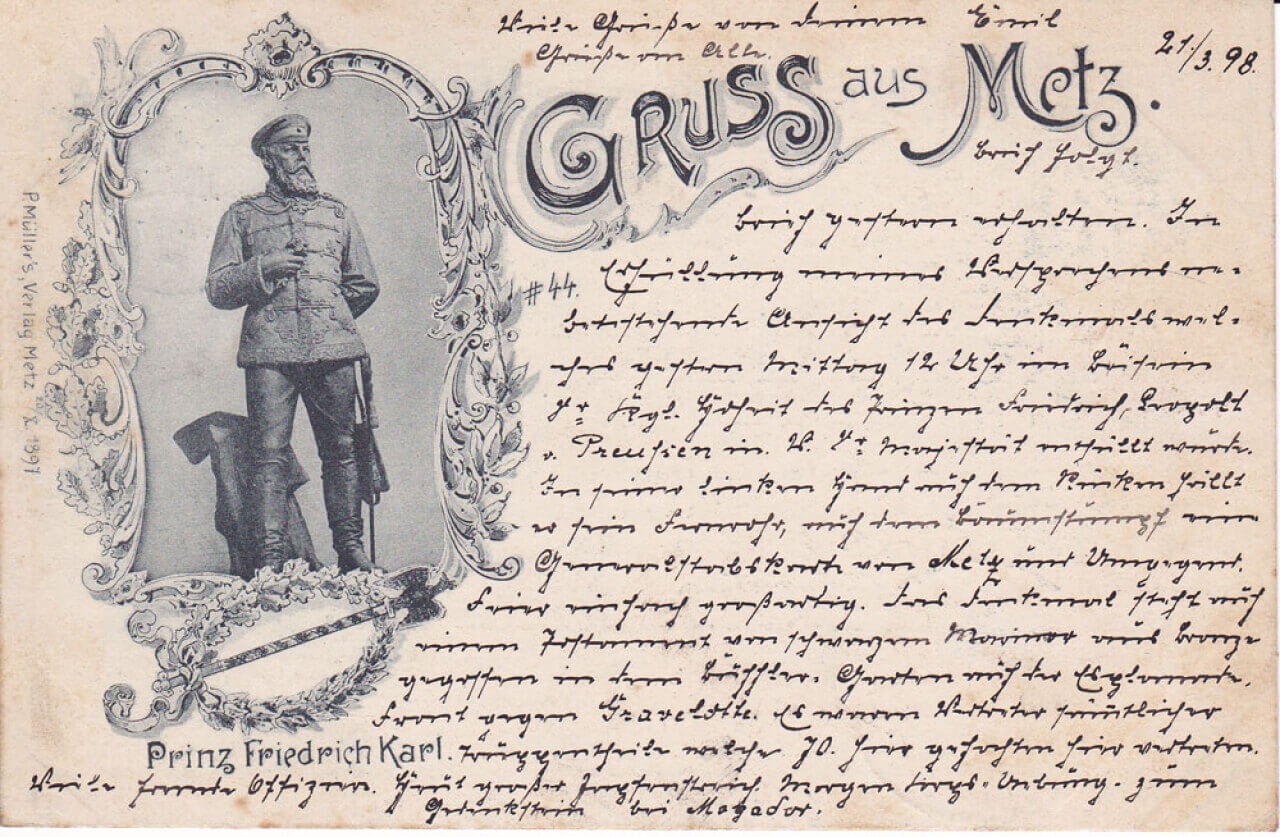 Viele Grüße von Deinem Emil
Grüße an Alle.
21./3.98.
GRUSS aus Metz.
Brief folgt.
Brief gestern erhalten. In
#44.
Erfüllung meines Versprechens ne-
benstehende Ansicht des Denkmals wel-
ches gestern Mittag 12 Uhr im Beisein
Sr Kgl. Hoheit des Prinzen Friedrich Leopold
v. Preußen in V. Sr Majestät enthüllt wurde.
In seiner linken Hand auf dem Rücken hält
er sein Fernrohr, auf dem Baumstumpf eine
Generalstabskarte von Metz und Umgegend.
Feier einfach großartig. Das Denkmal steht auf
einem Postament von schwarzem Marmor aus Bronze
gegossen in dem Garten auf der Esplanade,
Front gegen Gravelotte. Es waren Vertreter sämtlicher
Prinz Friedrich Karl. Truppentheile welche 70. hier gefochten hier vertreten.
Viele fremde Offiziere. Heut großer Zapfenstreich. Morgen Corps-Uebung. zum
Gedenkstein bei Mogador.
P. Müller's Verlag Metz 1897